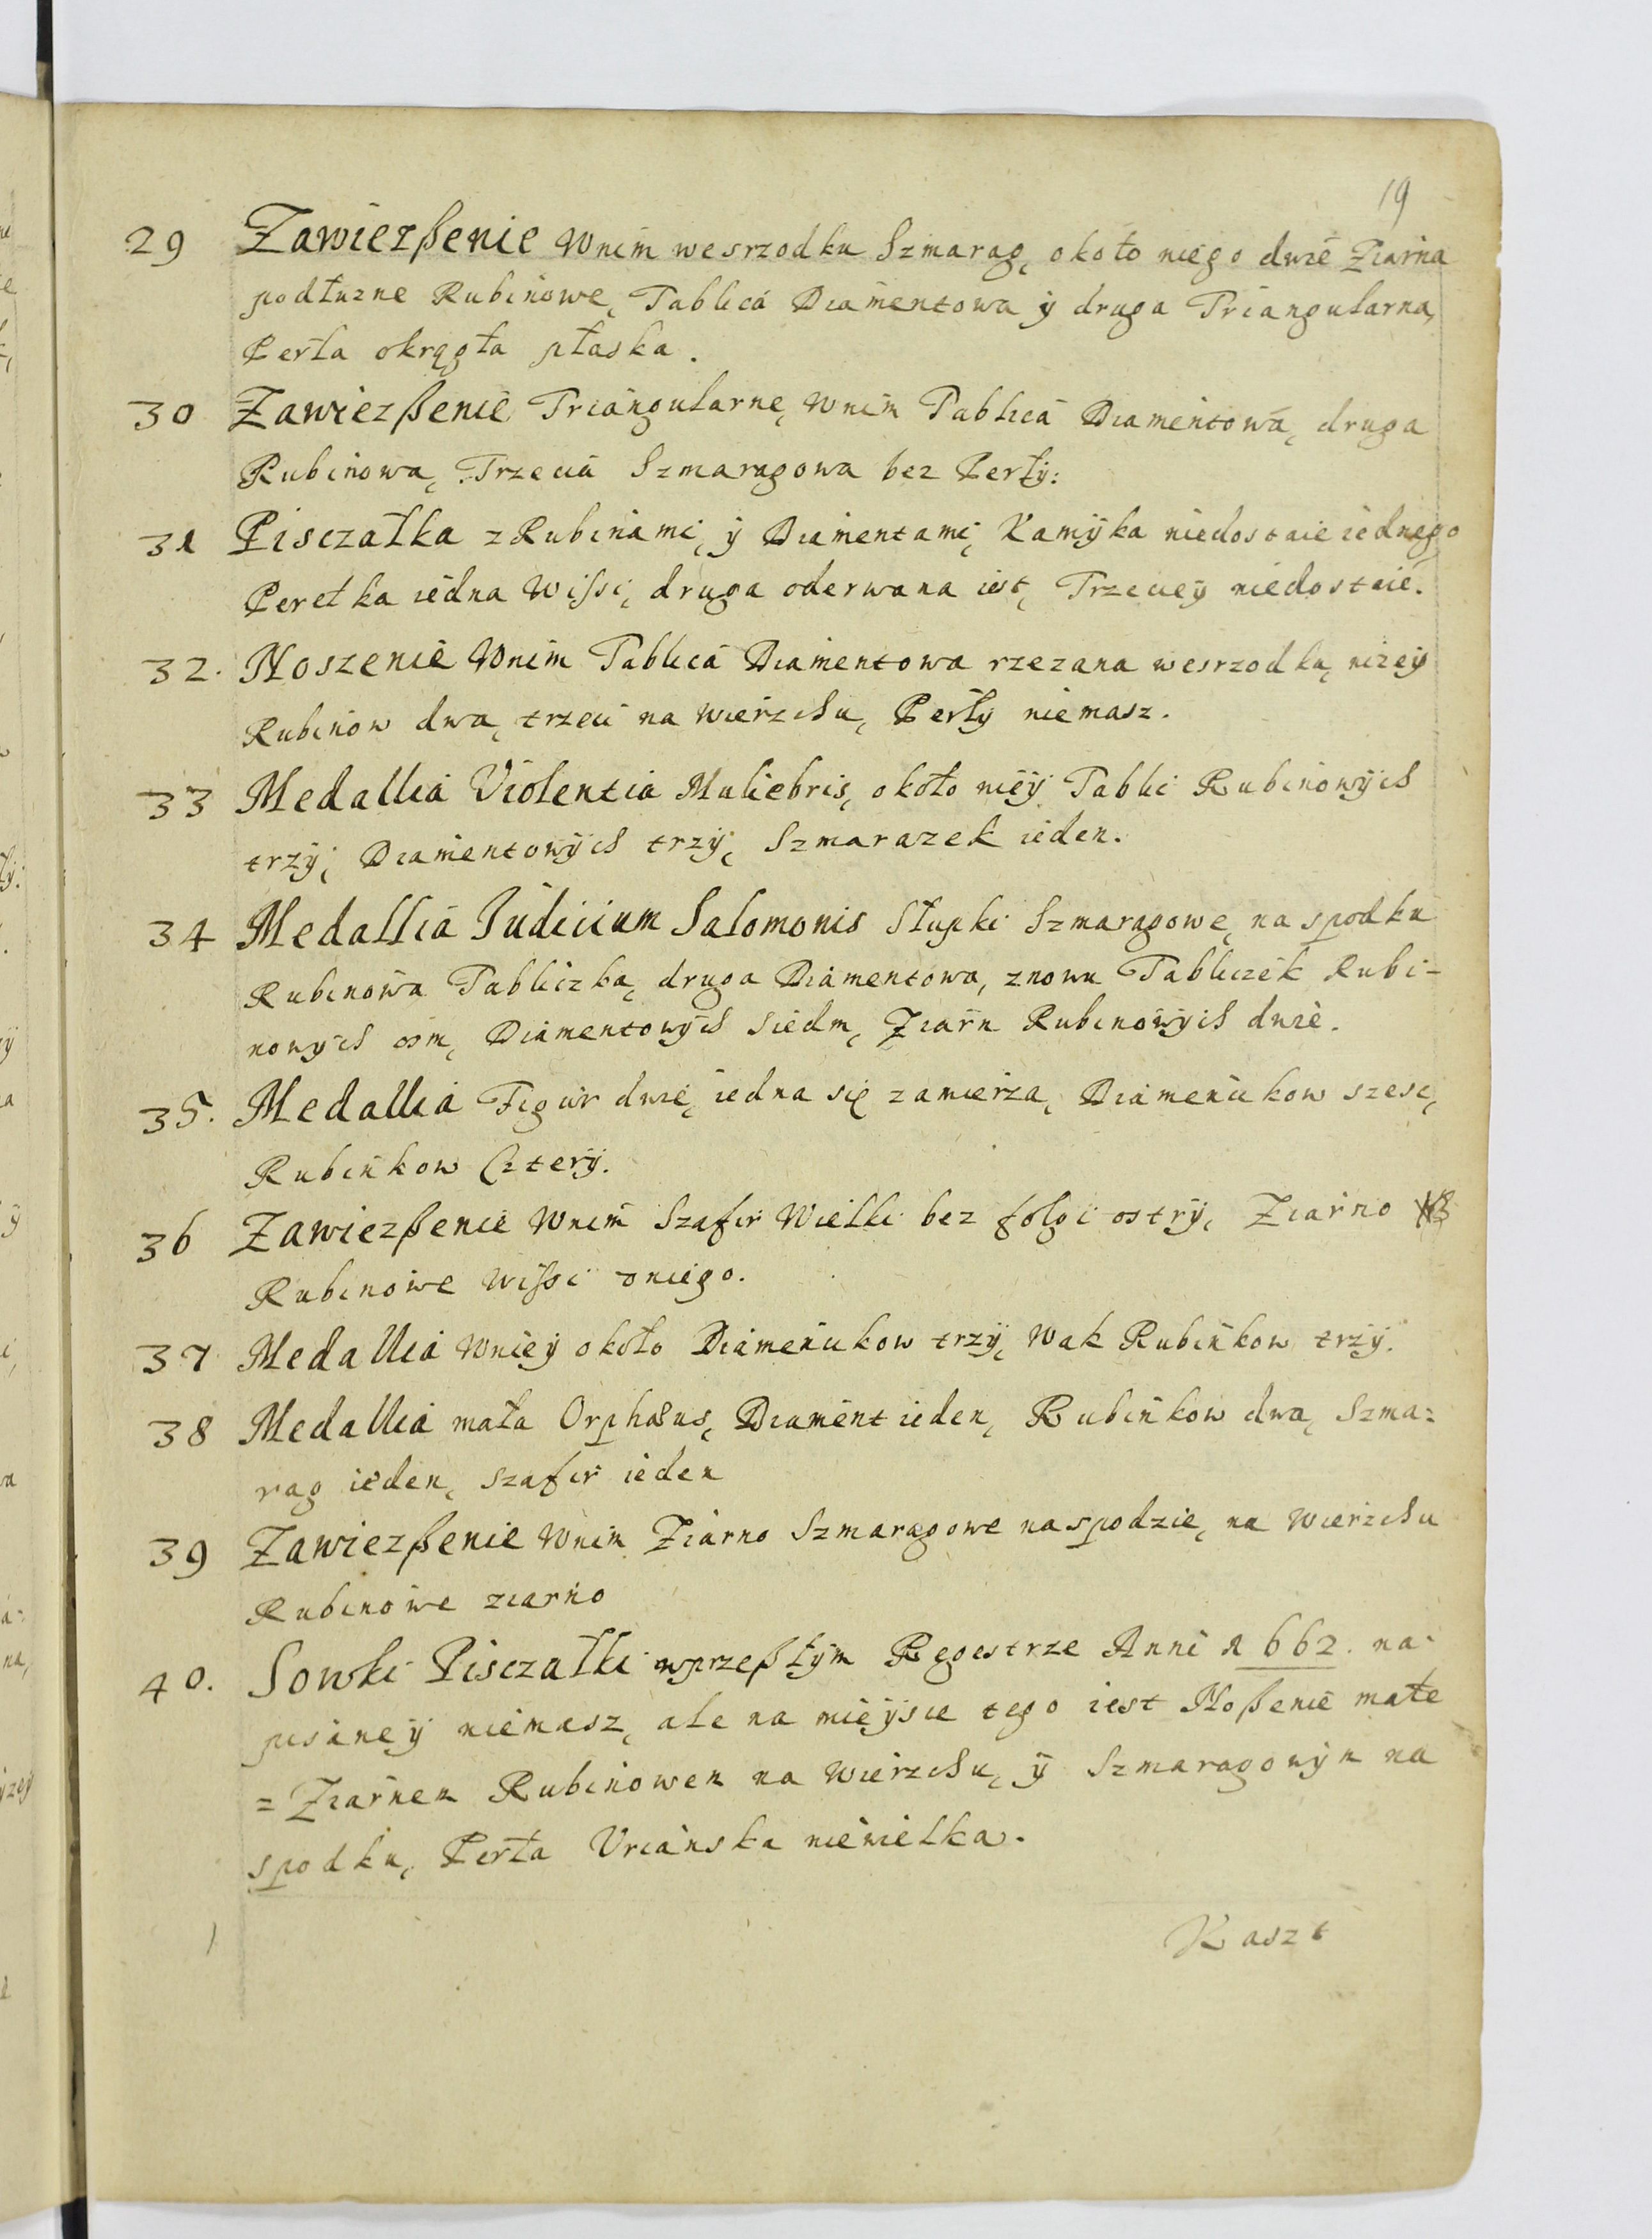 19
29 Zawiezßenie wnim wesrzodku Szmarag, około niego dwie Ziarna
podłuzne Rubinowe, Tablica Diamentowa y druga Triangularna,
Perła okrągła płaska.
30 Zawiezßenie Triangularne, wnim Tablica Diamentowa, druga
Rubinowa, Trzecia Szmaragowa bez Perły:
31 Pisczałka z Rubinami, y Diamentami, Kamyka niedostaie iednego
Perełka iedna wissi, druga oderwana iest, Trzeciey niedostaie.
32. Noszenie wnim Tablica Diamentowa rzezana wesrzodku, nizey
Rubinow dwa, trzeci na wierzchu, Perły niemasz.
33 Medallia Violentia Muliebris, około niey Tablic Rubinowych
trzy, Diamentowych trzy, Szmarazek ieden.
34 Medallia Judicium Salomonis Słupki Szmaragowe, na spodku
Rubinowa Tabliczka, druga Diamentowa, znowu Tabliczek Rubi-
nowych osm, Diamentowych siedm, Ziarn Rubinowych dwie.
35. Medallia Figur dwie, iedna się zamierza, Diamencikow szesc,
Rubinkow Cztery.
36 Zawiezßenie wnim Szafir Wielki bez folgi ostry, Ziarno
Rubinowe wissi oniego.
37 Medallia wniey około Diamencikow trzy, wak Rubinkow trzy.
38 Medallia mała Orphæus, Diament ieden, Rubinkow dwa, Szma=
rag ieden, Szafir ieden
39 Zawiezßenie wnim Ziarno Szmaragowe naspodzie, na wierzchu
Rubinowe ziarno
40. Sowki Pisczałki wprzeßłym Regestrze Anni 1662. na-
pisaney niemasz, ale na mieysce tego iest Noßenie małe
= Ziarnem Rubinowem na wierzchu, y Szmaragowym na
spodku, Perła Uriańska niewielka.
Kaszt